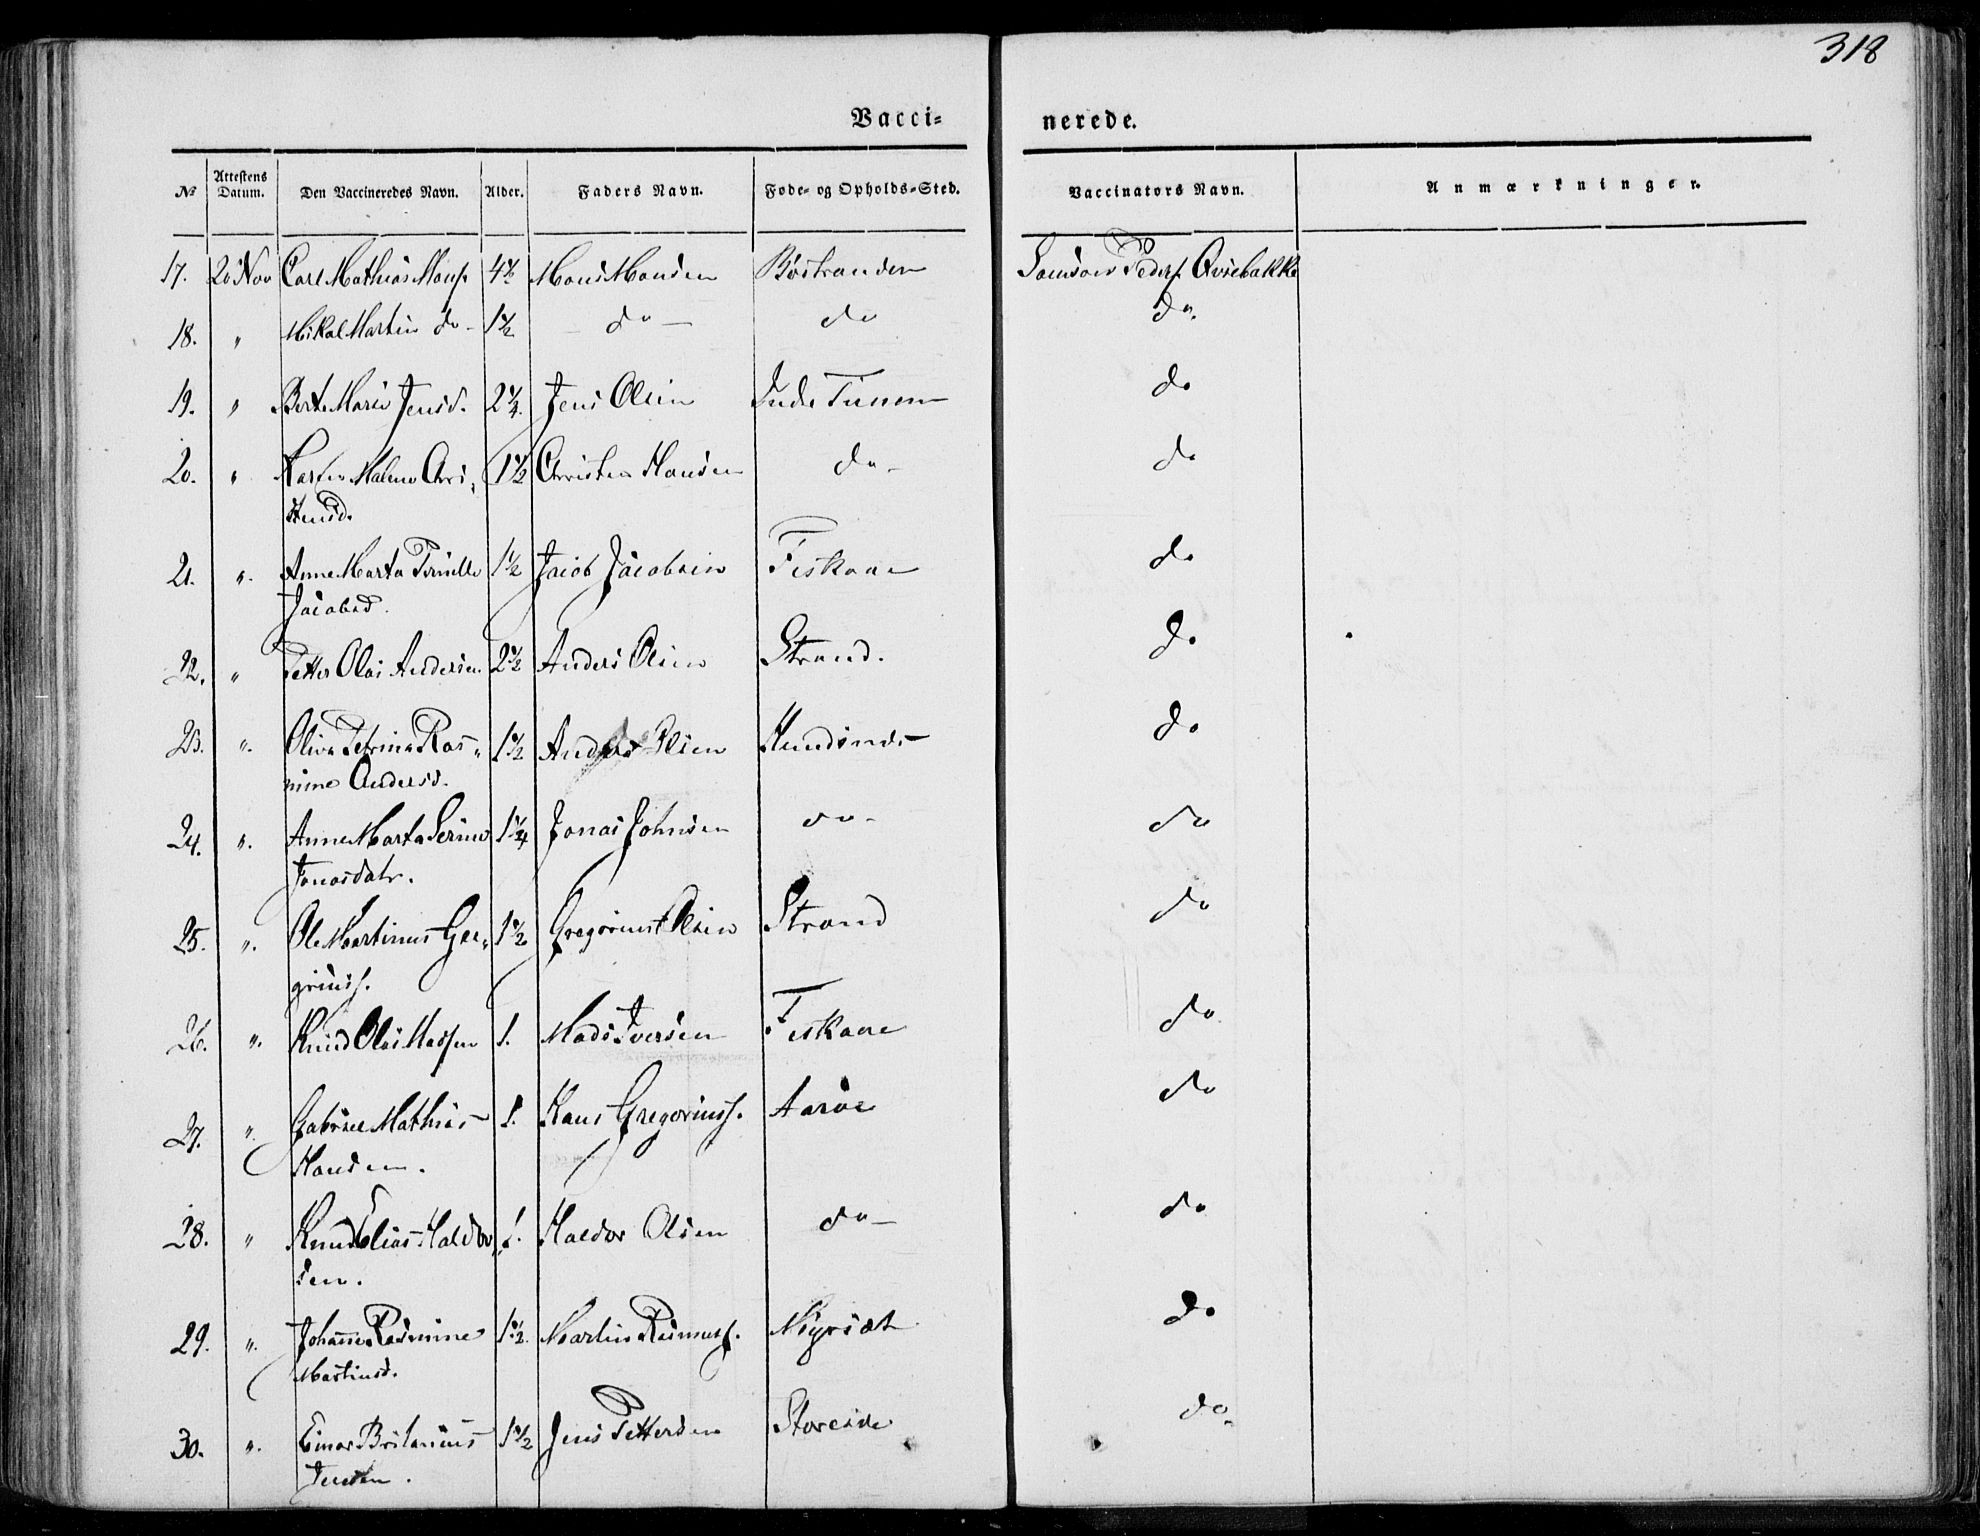 318
Vacci= nerede.
№ Attestens Datum. Den Vaccineredes Navn. Alder. Faders Navn. Føde- og Opholds-Sted. Vaccinators Navn. Anmærkninger.
17. 20 Nov Carl Mathias Monss 4½ Mons Monsen Bøstranden Samson Peders. Qviebakke
18. " Mikal Martin do- 1½ do- do do.
19. " Berte Marie Jensd. 2¼ Jens Olsen Indre Tunem do
20. " Karen Malene Chri- 1½ Christen Hansen do- do
stensd.
21. ". Anne Marta Pernille 1½ Jacob Jacobsen Fiskaae do
Jacobsd.
22. " Petter Olai Andersen 2½ Anders Olsen Strand. do
23. ". Oliva Petrina Ras- 1½ Anders Olsen Hundsnæs- do
mine Andersd.
24. ". Anne Marta Serine 1¼ Jonas Johnsen do- do
Jonasdatr.
25. ". Ole Martinus Gre- 1½ Gregorius Olsen Strand do
griuss.
26. ". Knud Olai Madsen 1. Mads Iversen Fiskaae do
27. " Gabriel Mathias 1. Hans Gregoriuss. Aarøe do
Hansen.
28. " Knud Elias Haldor 1. Haldor Olsen do- do
sen.
29. ". Johanne Rasmine 1½ Martin Rasmuss. Myrsæt do
Martinsd.
30. ". Einar Britanius 1½ Jens Pettersen Storeide do.
Jensen.